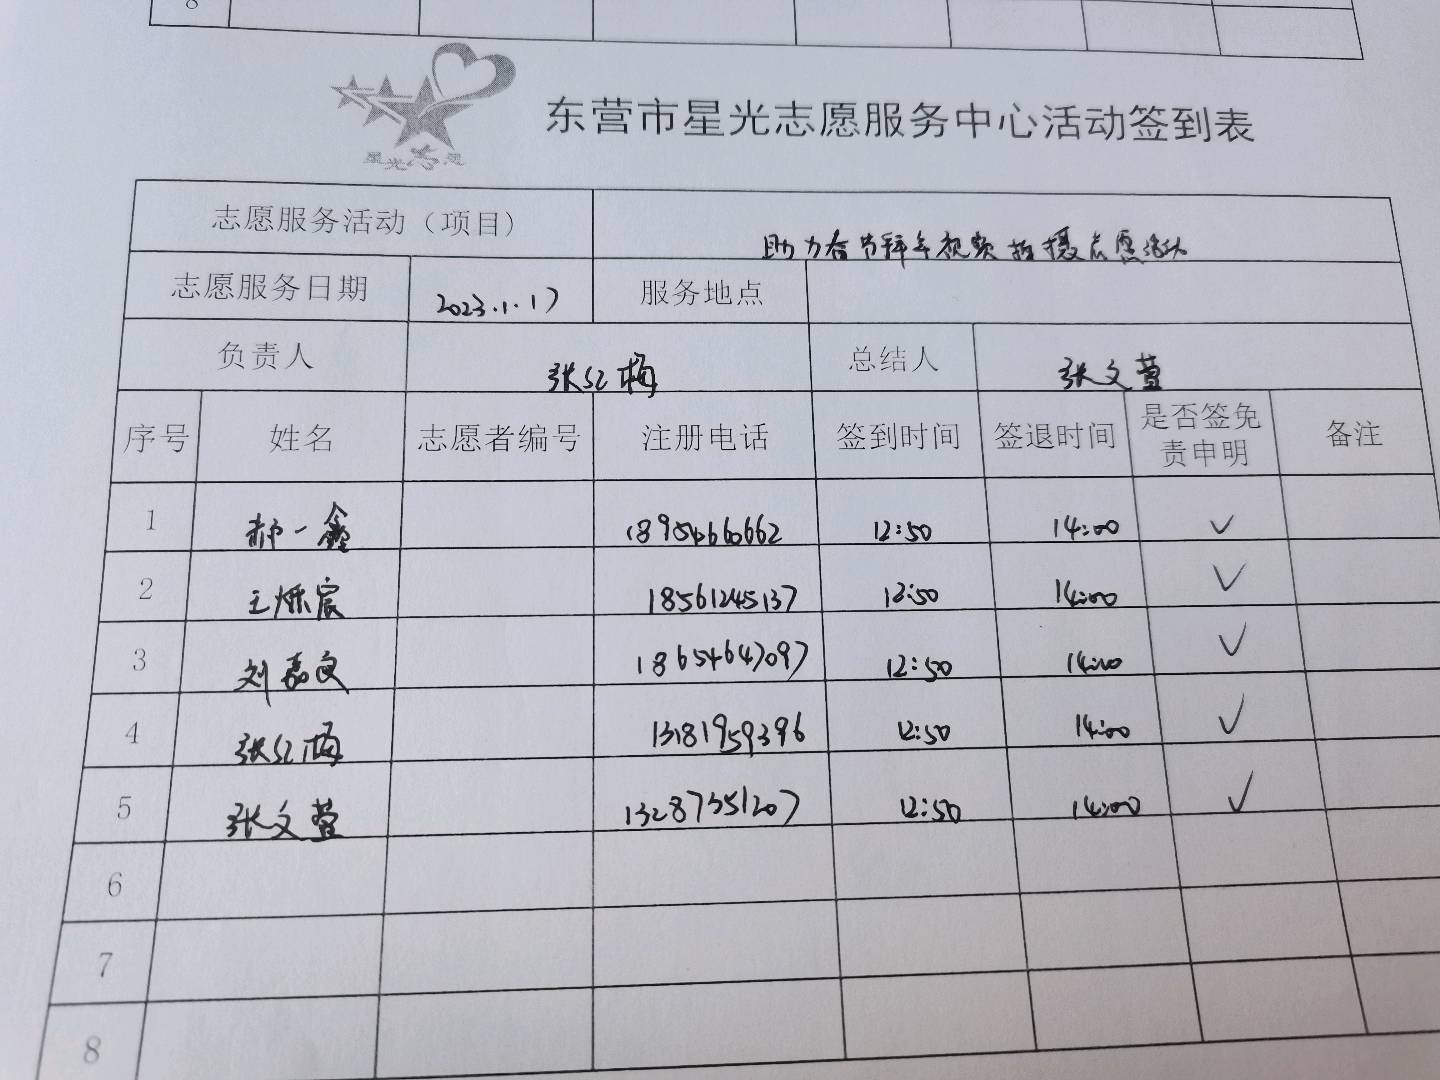 8
星光志愿
东营市星光志愿服务中心活动签到表
志愿服务活动（项目） 助力春节拜年视频拍摄志愿活动
志愿服务日期 2023.1.17 服务地点
负责人 张红梅 总结人 张文萱
序号 姓名 志愿者编号 注册电话 签到时间 签退时间 是否签免责申明 备注
1 郝一鑫 18954660662 12:50 14:00 ✓
2 王烁宸 18561245137 12:50 14:00 ✓
3 刘嘉文 18654647097 12:50 14:00 ✓
4 张红梅 13181959396 12:50 14:00 ✓
5 张文萱 13287351207 12:50 14:00 ✓
6
7
8